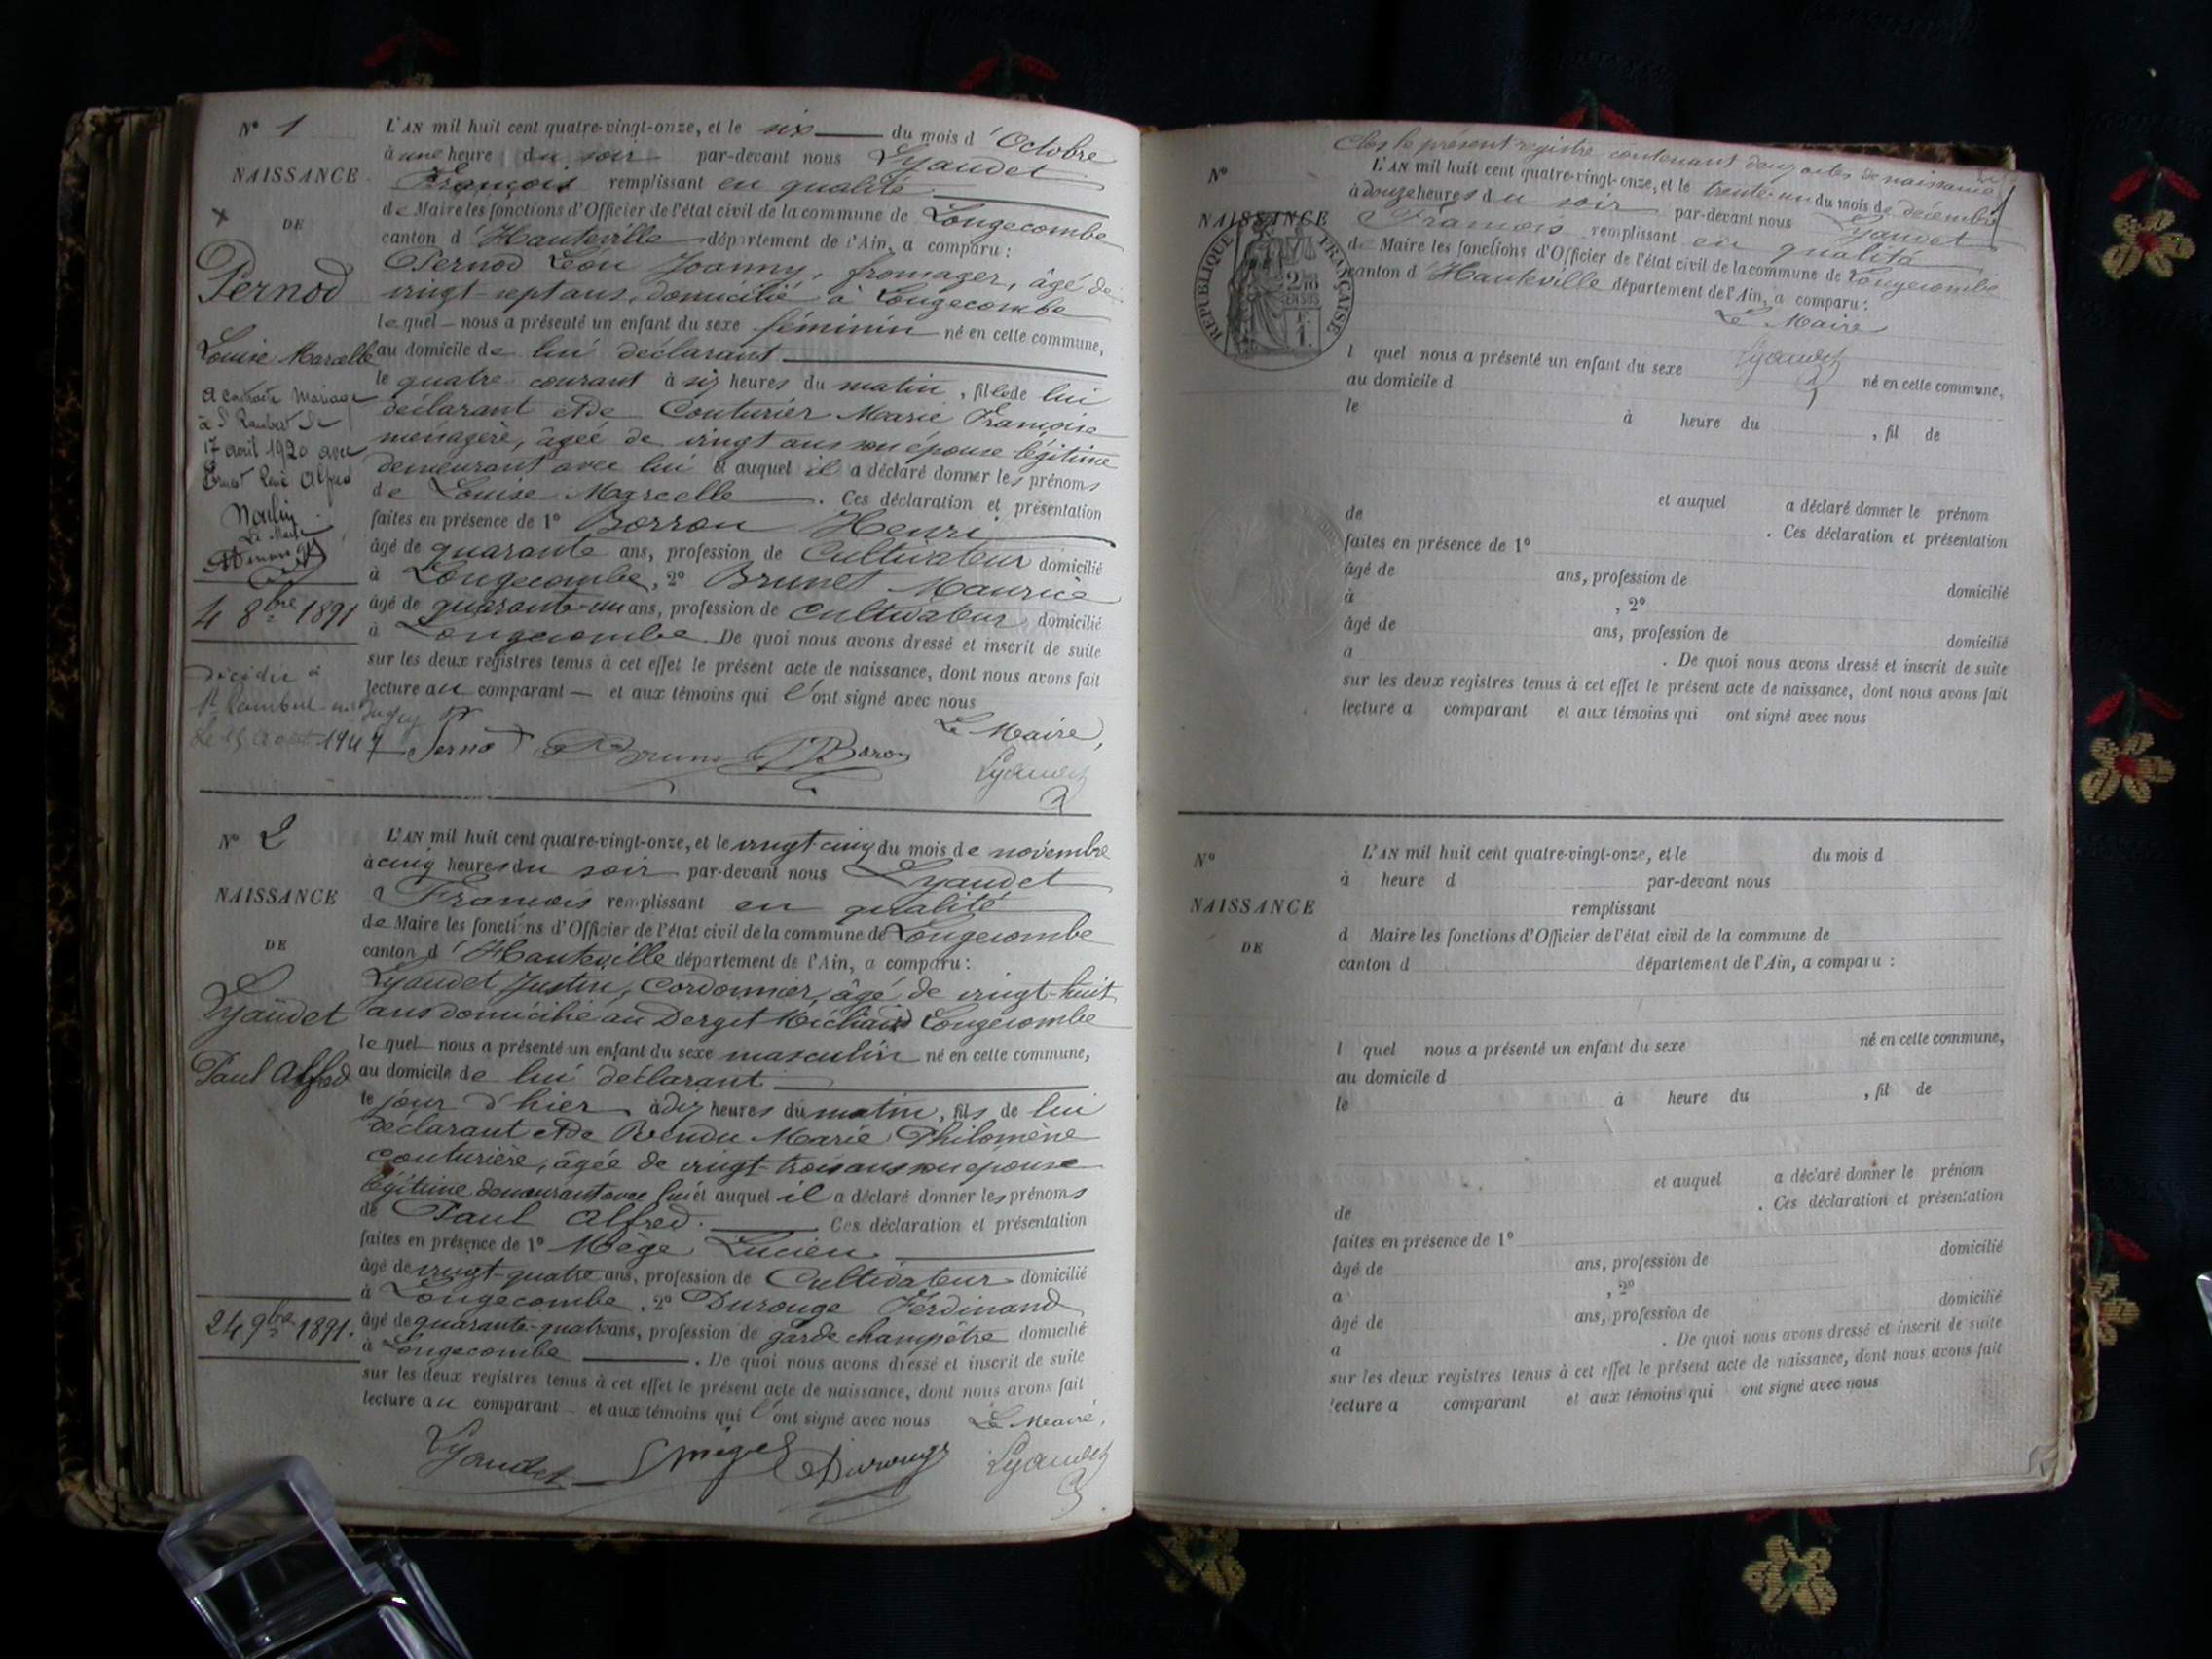 N° 1
NAISSANCE
DE
Pernod
Louise Marcelle
a contracté Mariage
à St Rambert le
17 avril 1920 avec
Ernest René Alfred
Moulin
Le Maire
4 8bre 1891
Décédée à
St Rambert-en-Bugey
Le 15 août 1947
L'AN mil huit cent quatre-vingt-onze, et le six du mois d'Octobre
à une heure du soir par-devant nous Lyaudet
François remplissant en qualité
de Maire les fonctions d'Officier de l'état civil de la commune de Longecombe
canton d'Hauteville département de l'Ain, a comparu :
Pernod Léon Joanny, fromager, âgé de
vingt-sept ans, domicilié à Longecombe
lequel nous a présenté un enfant du sexe féminin né en cette commune,
au domicile de lui déclarant
le quatre courant à six heures du matin, fille de lui
déclarant et de Couturier Marie Françoise
ménagère, âgée de vingt ans son épouse légitime
demeurant avec lui et auquel il a déclaré donner les prénoms
de Louise Marcelle. Ces déclaration et présentation
faites en présence de 1° Borron Henri
âgé de quarante ans, profession de Cultivateur domicilié
à Longecombe, 2° Brunet Maurice
âgé de quarante-un ans, profession de Cultivateur domicilié
à Longecombe. De quoi nous avons dressé et inscrit de suite
sur les deux registres tenus à cet effet le présent acte de naissance, dont nous avons fait
lecture au comparant et aux témoins qui l'ont signé avec nous
Le Maire,
Pernod Brunet Boron Lyaudet
N° 2
NAISSANCE
DE
Lyaudet
Paul Alfred
24 9bre 1891.
L'AN mil huit cent quatre-vingt-onze, et le vingt-cinq du mois de novembre
à cinq heures du soir par-devant nous Lyaudet
François remplissant en qualité
de Maire les fonctions d'Officier de l'état civil de la commune de Longecombe
canton d'Hauteville département de l'Ain, a comparu :
Lyaudet Justin, Cordonnier, âgé de vingt-huit
ans domicilié au Derget Longecombe
lequel nous a présenté un enfant du sexe masculin né en cette commune,
au domicile de lui déclarant
le jour d'hier à dix heures du matin, fils de lui
déclarant et de Rendu Marie Philomène
couturière, âgée de vingt-trois ans son épouse
légitime demeurant avec lui et auquel il a déclaré donner les prénoms
de Paul Alfred. Ces déclaration et présentation
faites en présence de 1° Mège Lucien
âgé de vingt-quatre ans, profession de Cultivateur domicilié
à Longecombe, 2° Durouge Ferdinand
âgé de quarante-quatre ans, profession de garde champêtre domicilié
à Longecombe. De quoi nous avons dressé et inscrit de suite
sur les deux registres tenus à cet effet le présent acte de naissance, dont nous avons fait
lecture au comparant et aux témoins qui l'ont signé avec nous Le Maire,
Lyaudet Mège Durouge Lyaudet
Clos le présent registre contenant deux actes de naissance
N°
NAISSANCE
REPUBLIQUE FRANÇAISE
2/10 EN SUS
1 F.
L'AN mil huit cent quatre-vingt-onze, et le trente-un du mois de décembre
à douze heures du soir par-devant nous Lyaudet
François remplissant en qualité
de Maire les fonctions d'Officier de l'état civil de la commune de Longecombe
canton d'Hauteville département de l'Ain, a comparu :
Le Maire
Lyaudet
l quel nous a présenté un enfant du sexe né en cette commune,
au domicile d
le à heure du , fil de
et auquel a déclaré donner le prénom
de . Ces déclaration et présentation
faites en présence de 1°
âgé de ans, profession de domicilié
à , 2°
âgé de ans, profession de domicilié
à . De quoi nous avons dressé et inscrit de suite
sur les deux registres tenus à cet effet le présent acte de naissance, dont nous avons fait
lecture a comparant et aux témoins qui ont signé avec nous
N°
NAISSANCE
DE
L'AN mil huit cent quatre-vingt-onze, et le du mois d
à heure d par-devant nous
remplissant
d Maire les fonctions d'Officier de l'état civil de la commune de
canton d département de l'Ain, a comparu :
l quel nous a présenté un enfant du sexe né en cette commune,
au domicile d
le à heure du , fil de
et auquel a déclaré donner le prénom
de . Ces déclaration et présentation
faites en présence de 1°
âgé de ans, profession de domicilié
à , 2°
âgé de ans, profession de domicilié
à . De quoi nous avons dressé et inscrit de suite
sur les deux registres tenus à cet effet le présent acte de naissance, dont nous avons fait
lecture a comparant et aux témoins qui ont signé avec nous